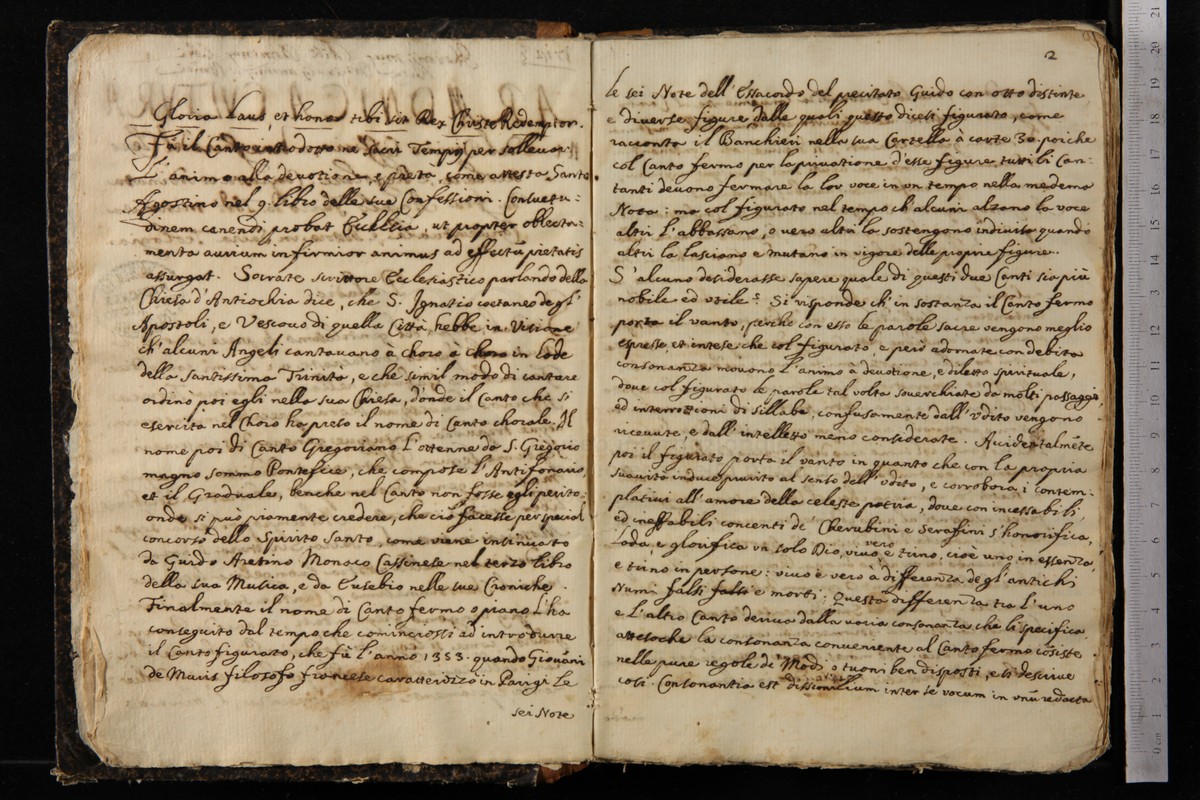 Gloria Laus, et honor tibi sit Rex Christe Redemptor.
Fù il Canto introdotto ne sacri Tempij per solleuar
L'animo alla deuotione, e pietà, come attesta Santo
Agostino nel 9. libro delle sue Confessioni. Consuetu:
dinem canendi probat Ecclesia, ut propter oblecta:
menta aurium infirmior animus ad effectũ pietatis
assurgat. Socrate scrittore Ecclesiastico parlando della
Chiesa d'Antiochia dice, che S. Ignatio coetaneo degl'
Apostoli, e Vescouo di quella Città hebbe in Visione
ch'alcuni Angeli cantauano à choro à choro in lode
della Santissima Trinità, e che simil modo di cantare
ordinò poi egli nella sua Chiesa, donde il Canto che si
esercita nel Choro ha preso il nome di Canto chorale. Il
nome poi di Canto Gregoriano l'ottenne da S. Gregorio
magno sommo Pontefice, che compose l'Antifonario
et il Graduale, benche nel Canto non fosse egli perito:
onde si può piamente credere, che ciò facesse per special
concorso dello Spirito Santo, come viene insinuato
da Guido Aretino Monaco Cassinese nel terzo libro
della sua Musica, e da Eusebio nelle sue Croniche.
Finalmente il nome di Canto fermo o piano l'ha
conseguito dal tempo che cominciossi ad introdurre
il Canto figurato, che fù l'anno 1353. quando Giouãni
de Muris filosofo francese caratterizzò in Parigi le
sei Note
2
le sei Note dell'Essacordo del precitato Guido con otto distinte
e diuerse figure dalle quali questo dicesi figurato, come
racconta il Banchieri nella sua Cartella à carte 30. poiche
col Canto fermo per la priuatione d'esse figure tutti li Can:
tanti deuono fermare la lor voce in vn tempo nella medema
Nota: ma col figurato nel tempo ch'alcuni alzano la voce
altri l'abbassano, o vero altri la sostengono indiuisa quando
altri la lasciano e mutano in vigore delle proprie figure.
S'alcuno desiderasse sapere quale di questi due Canti sia più
nobile ed vtile? Si risponde ch'in sostanza il Canto fermo
porta il vanto, perche con esso le parole sacre vengono meglio
espresse, et intese che col figurato, e però adornate con debita
consonanza mouono l'animo à deuotione, e diletto spirituale,
doue col figurato le parole tal volta souerchiate da molti passaggi,
ed interrottioni di sillabe, confusamente dall'vdito vengono
riceuute, e dall'intelletto meno considerate. Accidentalmẽte
poi il figurato porta il vanto in quanto che con la propria
suauità induce prurito al senso dell'vdito, e corrobora i contem:
platiui all'amore della celeste patria, doue con incessabili,
ed ineffabili concenti de Cherubini e Serafini s'honorifica,
loda, e glorifica vn solo Dio, viuo, e vero trino, cioè uno in essenza,
e trino in persone: viuo e vero à differenza degl'antichi
Numi falsi falsi e morti. Questa differenza tra l'uno
e l'altro Canto deriua dalla varia consonanza che li specifica
attesoche la consonanza conueniente al Canto fermo cõsiste
nelle pure regole de Modi, o tuoni ben disposti, e si descriue
così. Consonantia est dissimilium inter se vocum in vnũ redacta